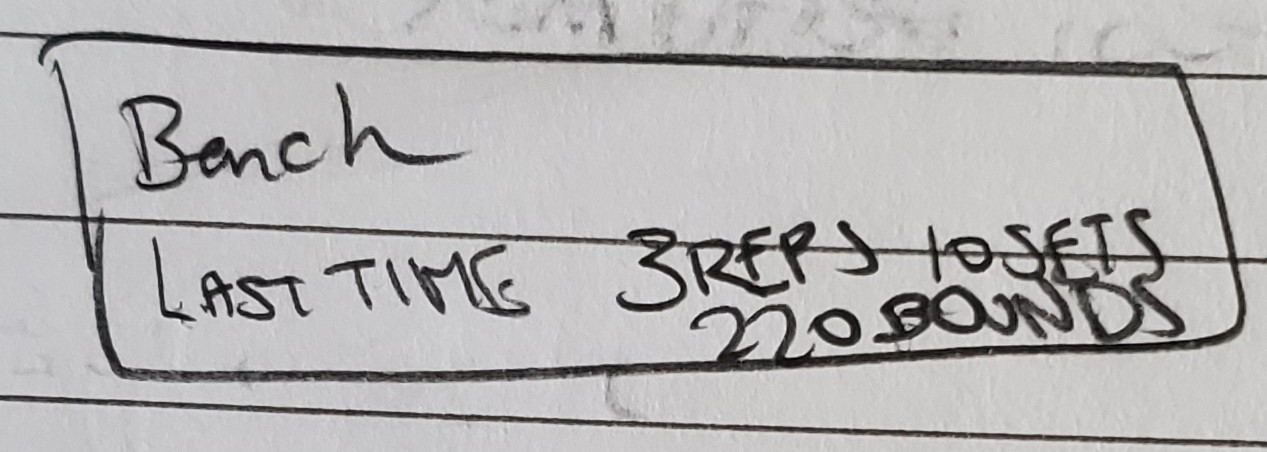 Bench
LAST TIME 3 REPS 10 SETS
220 POUNDS